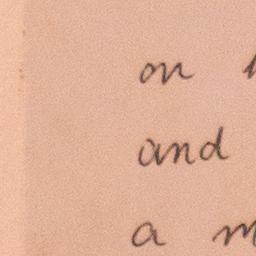 on
and
a